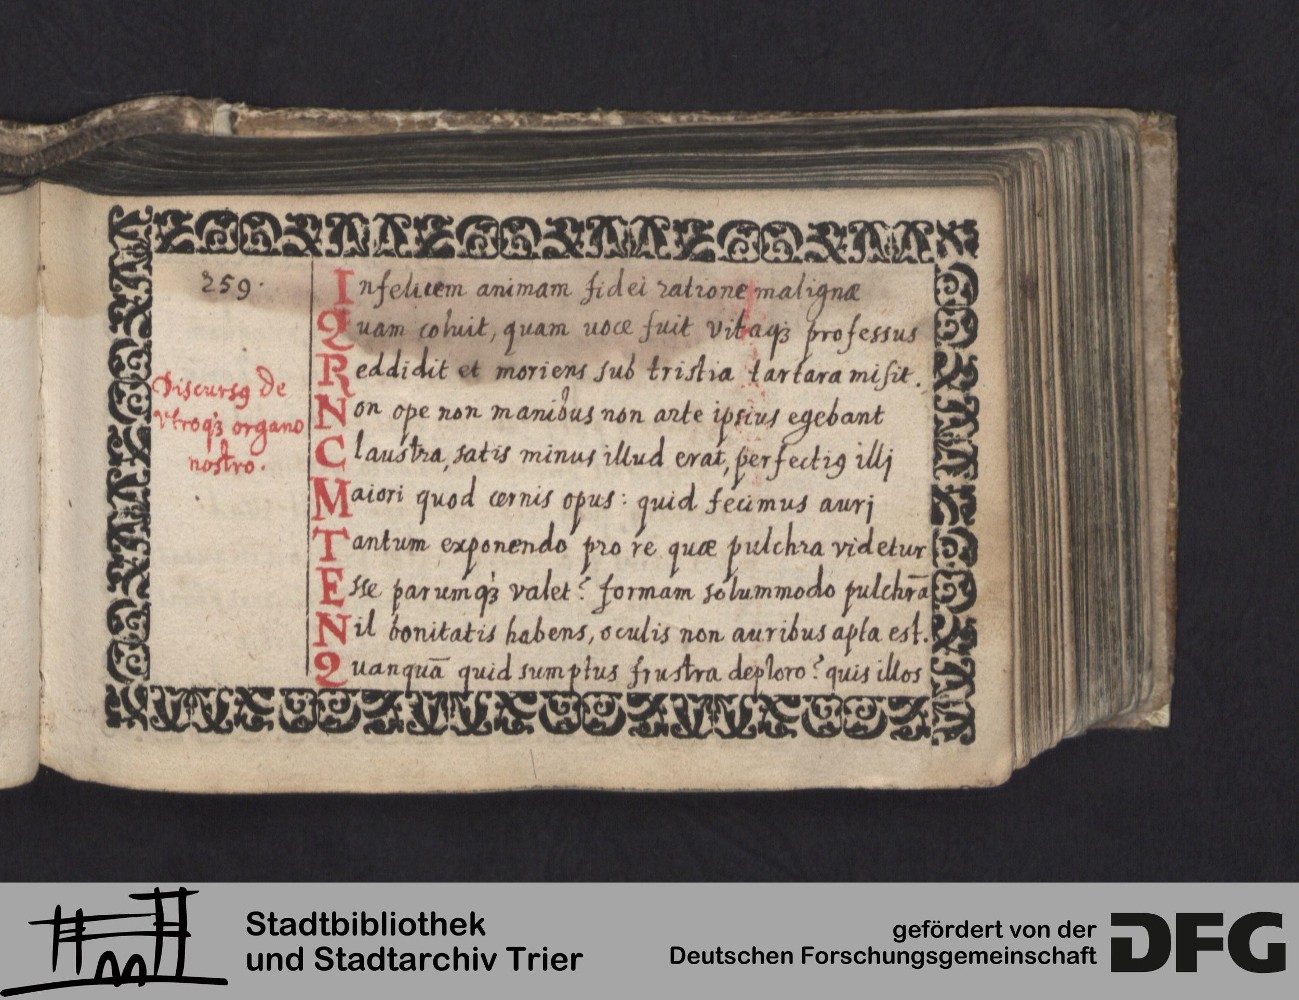 259.
Discursꝰ de
Vtroqꝫ organo
nostro.
Infelicem animam fidei ratione malignæ
Quam coluit, quam uoce fuit vitaqꝫ professus
Reddidit et moriens sub tristia tartara misit.
Non ope non manibus non arte ipsius egebant
Claustra, satis minus illud erat, perfectiꝰ illj
Maiori quod cernis opus: quid fecimus aurj
Tantum exponendo pro re quæ pulchra videtur
Esse parumqꝫ valet? formam solummodo pulchrā
Nil bonitatis habens, oculis non auribus apta est.
Quanquā quid sumptus frustra deploro? quis illos
Stadtbibliothek
und Stadtarchiv Trier
gefördert von der
Deutschen Forschungsgemeinschaft
DFG